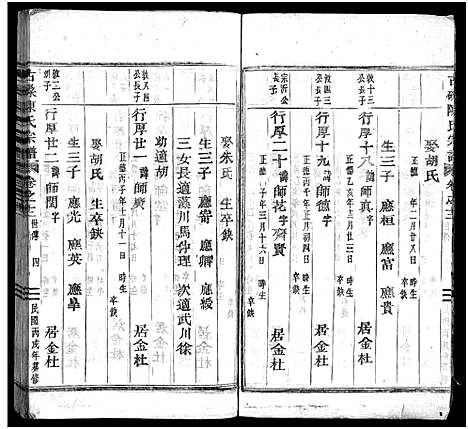 古磉陳氏宗譜
娶胡氏
年二月廿八日 時生 卒缺
敦十三公長子
行厚十八 諱師真 字
正德乙亥年三月廿三日 時生 卒缺
居金杜
生三子 應桓 應富 應貴
敦四三公長子
行厚十九 諱師續 字
正德 年正月初四日 時生 卒缺
居金杜
宗沂公長子
行厚二十 諱師花 字齊賢
正德 年三月十六日 時生 卒缺
居金杜
娶朱氏 生卒缺
生三子 應嵜 應卿 應綬
三女長適藻川馬仲理 次適武川徐
幼適胡
敦八四公長子
行厚廿一 諱師廣
正德丙子年十月十一日 時生 卒缺
居金杜
娶胡氏 生卒缺
生三子 應光 應英 應華
敦二公 子
行厚廿二 諱師閏 字
居金杜
古磉陳氏宗譜 卷之三 世傳 四 民國丙戌年重修